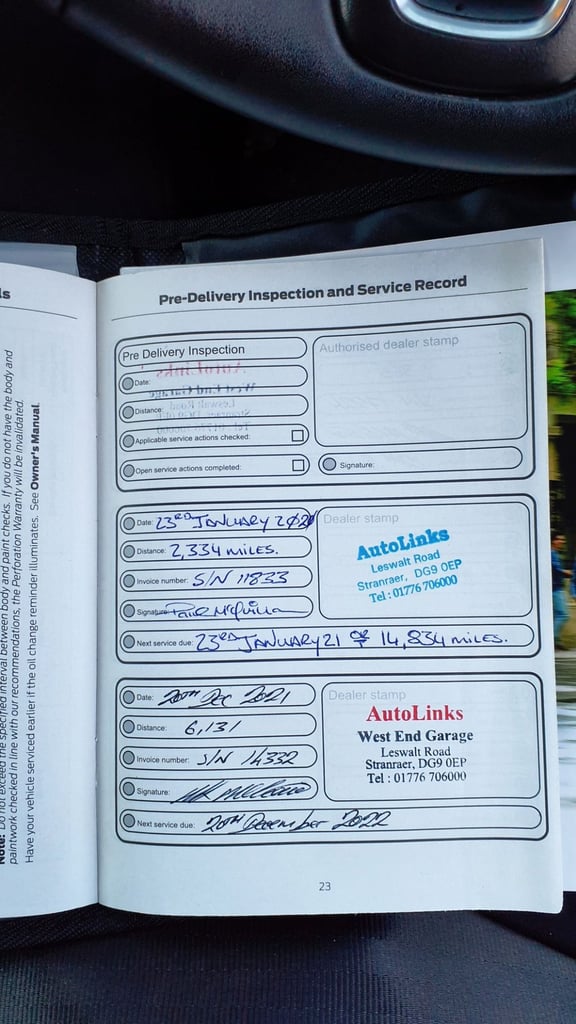 ls
Note: Do not exceed the specified interval between body and paint checks. If you do not have the body and
paintwork checked in line with our recommendations, the Perforation Warranty will be invalidated.
Have your vehicle serviced earlier if the oil change reminder illuminates. See Owner's Manual.
Pre-Delivery Inspection and Service Record
Pre Delivery Inspection
Date:
Distance:
Applicable service actions checked:
Open service actions completed:
Authorised dealer stamp
Signature:
Date: 23RD JANUARY
Distance: 2,334 MILES.
Invoice number: S/N 11833
Signature:
Dealer stamp
AutoLinks
Leswalt Road
Stranraer, DG9 0EP
Tel: 01776 706000
Next service due: 23RD JANUARY 21 OR 14,834 MILES.
Date: 20TH DEC 2021
Distance: 6,131
Invoice number: S/N 14332
Signature:
Dealer stamp
AutoLinks
West End Garage
Leswalt Road
Stranraer, DG9 0EP
Tel : 01776 706000
Next service due: 20TH December 2022
23